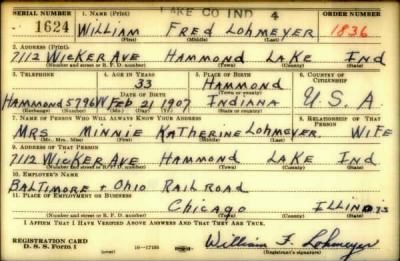 SERIAL NUMBER 1. NAME (Print) LAKE CO IND 4 ORDER NUMBER
1624 WILLIAM FRED LOHMEYER 1836
(First) (Middle) (Last)
2. ADDRESS (Print)
7112 WICKER AVE HAMMOND LAKE IND
(Number and street or R. F. D. number) (Town) (County) (State)
3. TELEPHONE 4. AGE IN YEARS 5. PLACE OF BIRTH 6. COUNTRY OF CITIZENSHIP
33 HAMMOND
DATE OF BIRTH (Town or county)
HAMMOND 5796W FEB 21 1907 INDIANA U.S.A.
(Exchange) (Number) (Mo.) (Day) (Yr.) (State or country)
7. NAME OF PERSON WHO WILL ALWAYS KNOW YOUR ADDRESS 8. RELATIONSHIP OF THAT PERSON
MRS MINNIE KATHERINE LOHMEYER WIFE
(Mr., Mrs., Miss) (First) (Middle) (Last)
9. ADDRESS OF THAT PERSON
7112 WICKER AVE HAMMOND LAKE IND
(Number and street or R. F. D. number) (Town) (County) (State)
10. EMPLOYER'S NAME
BALTIMORE + OHIO RAILROAD
11. PLACE OF EMPLOYMENT OR BUSINESS
CHICAGO ILLINOIS
(Number and street or R. F. D. number) (Town) (County) (State)
I AFFIRM THAT I HAVE VERIFIED ABOVE ANSWERS AND THAT THEY ARE TRUE.
REGISTRATION CARD
D. S. S. Form 1 16-17105 William F. Lohmeyer
(Registrant's signature)